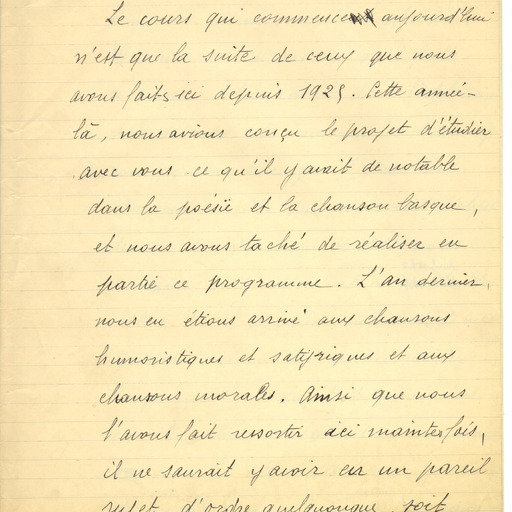 Le cours qui commence aujourd'hui
n'est que la suite de ceux que nous
avons faits ici depuis 1925. Cette année-
là, nous avions conçu le projet d'étudier
avec vous ce qu'il y avait de notable
dans la poésie et la chanson basque,
et nous avons taché de réaliser en
partie ce programme. L'an dernier,
nous en étions arrivé aux chansons
humoristiques et satyriques et aux
chansons morales. Ainsi que nous
l'avons fait ressortir ici maintes fois,
il ne saurait y avoir en un pareil
sujet d'ordre quelquonque, soit